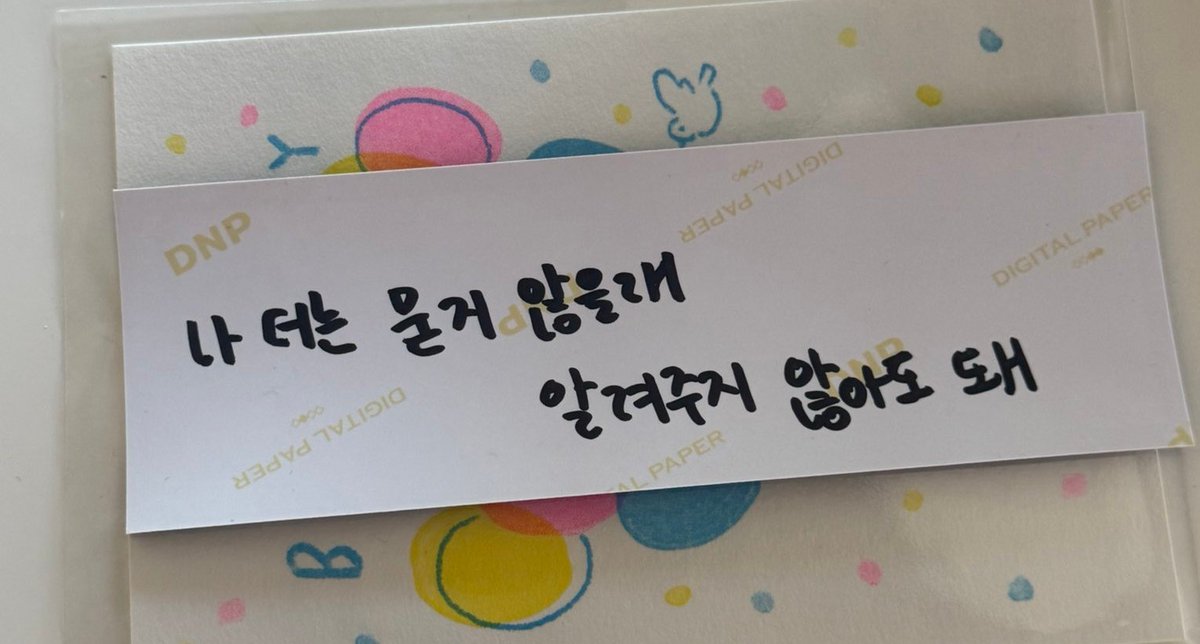 Y
DNP
DIGITAL PAPER
DIGITAL PAPER
나 더는 묻지 않을래
DNP
알려주지 않아도 돼
DNP
DIGITAL PAPER
DIGITAL PAPER
B